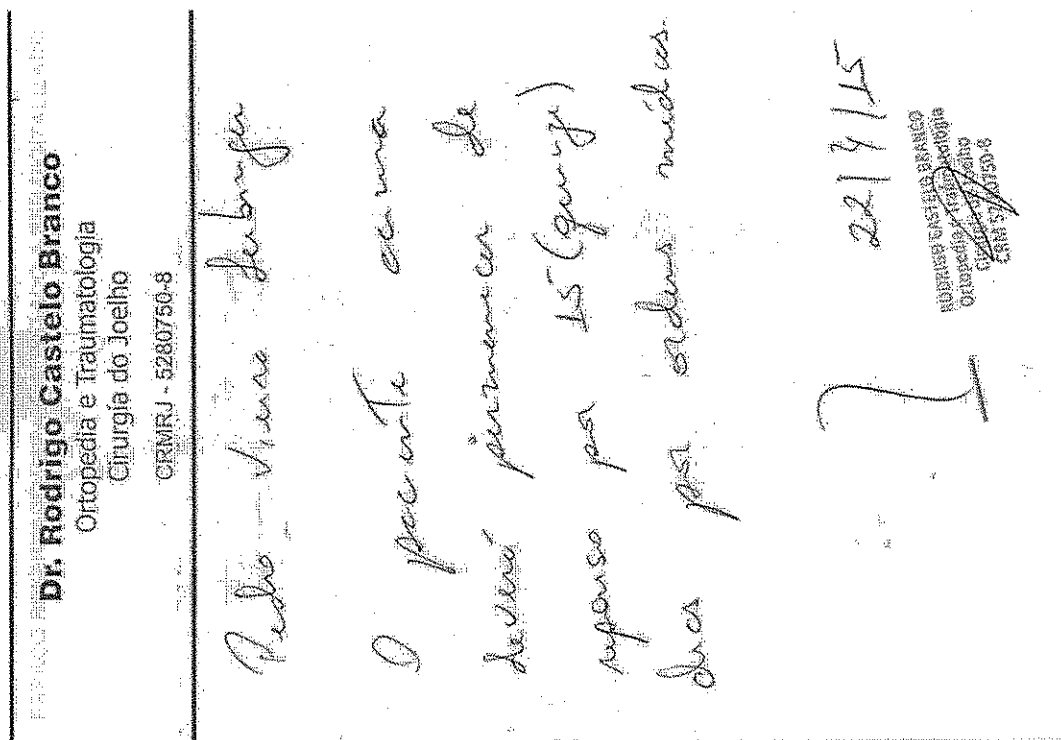 Dr. Rodrigo Castelo Branco
Ortopedia e Traumatologia
Cirurgia do Joelho
CRMRJ - 5280750-8
Pedro Vieira
O paciente acima
deverá permanecer de
repouso por 15 (quinze)
dias por ordens médicas.
22/4/15
RODRIGO CASTELO BRANCO
Ortopedia e Traumatologia
Cirurgia do Joelho
CRM 5280750-8